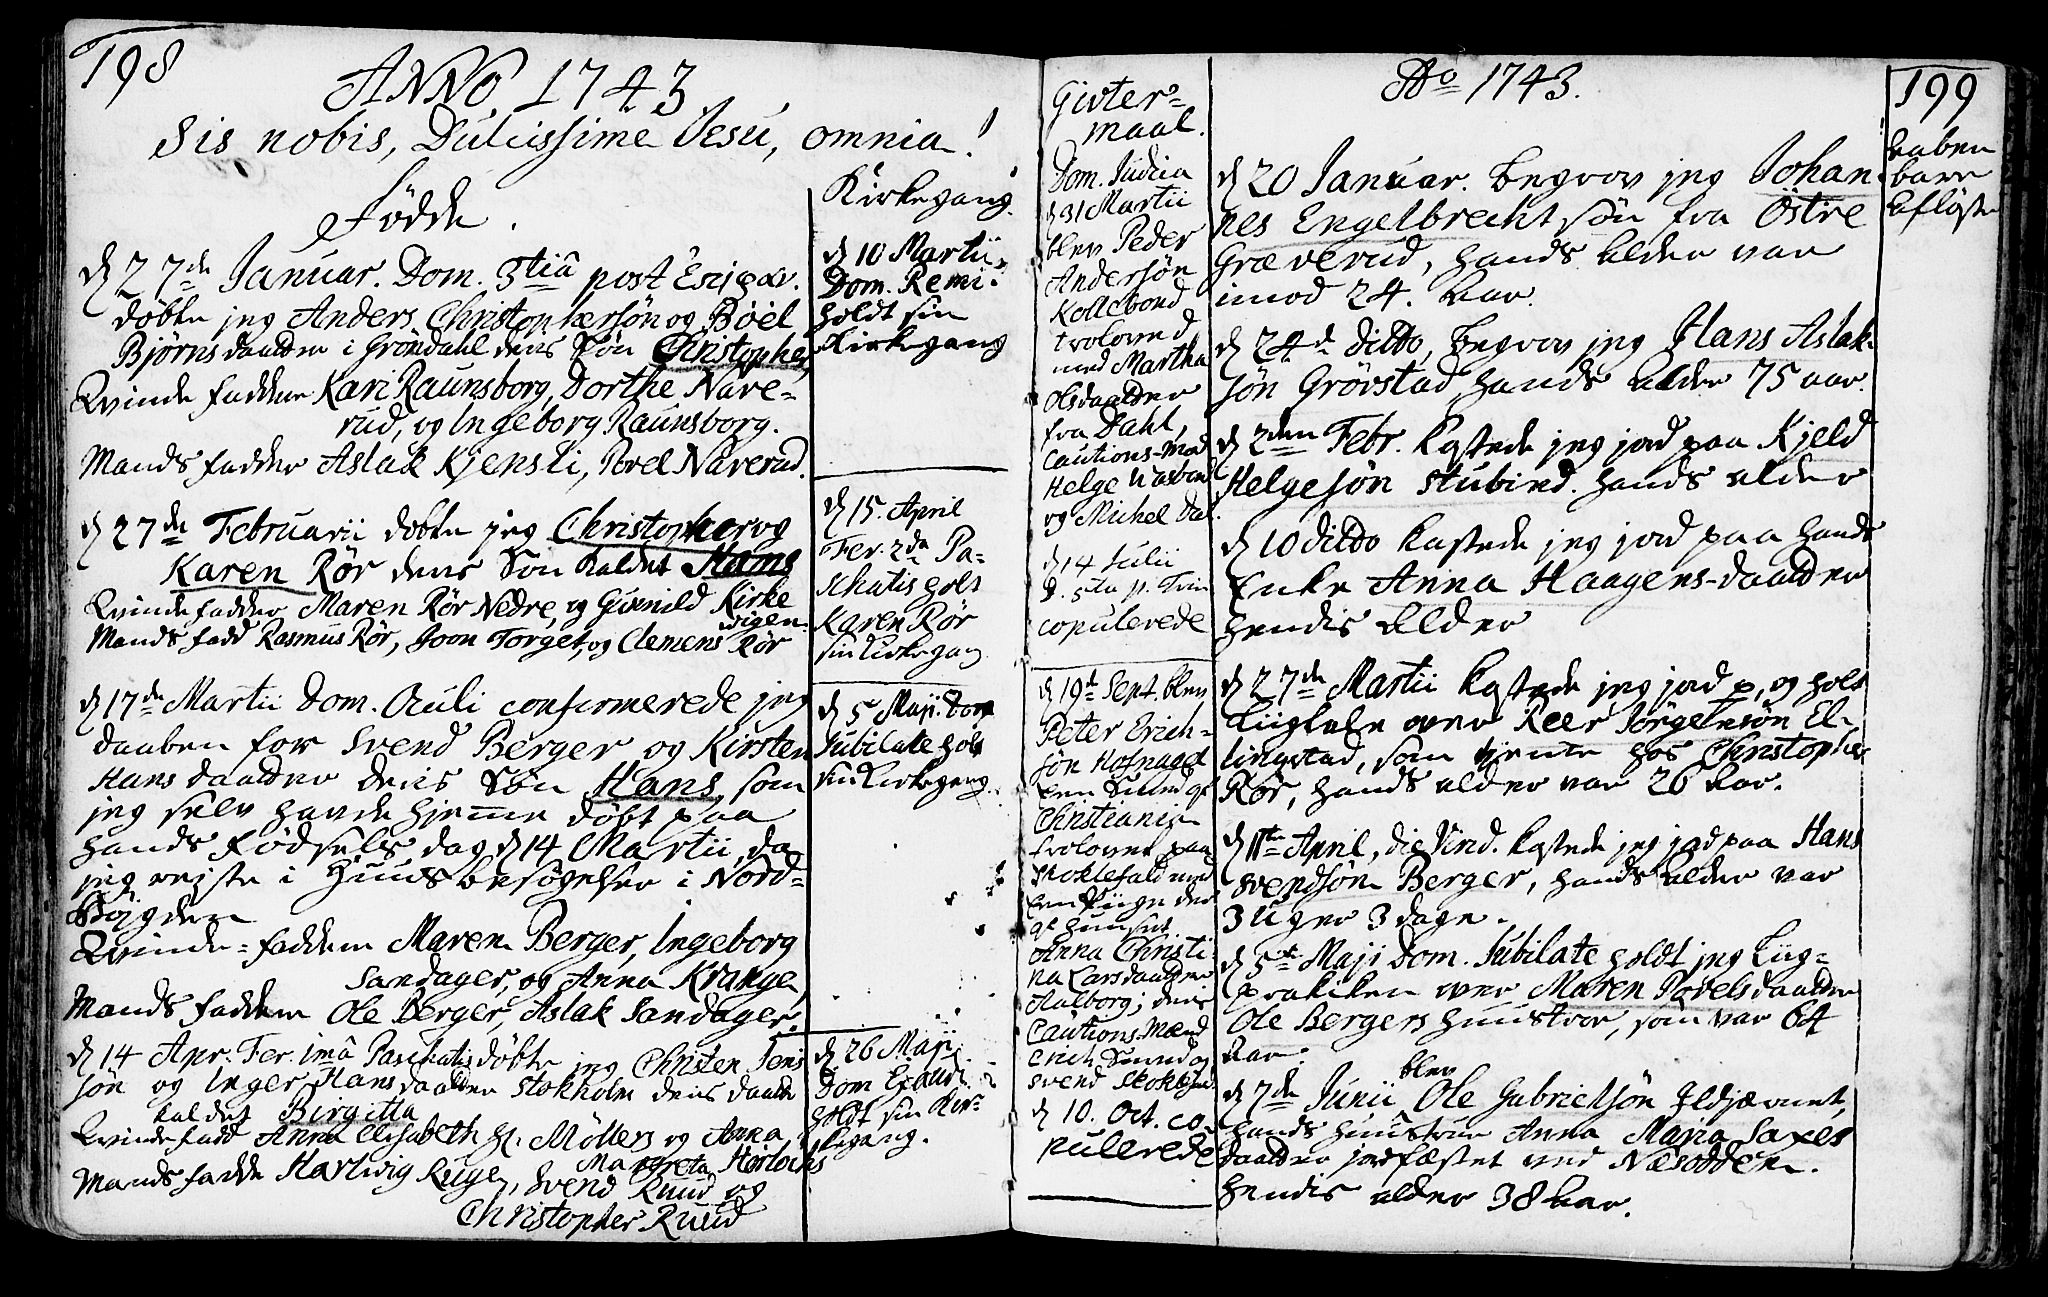 198
ANNO 1743
Sis nobis, Dulcissime Jesu, omnia!
Födde.
d 27de Januar. Dom. 3tiâ post Epiphan.
döbte jeg Anders Christophersön og Böel
Björnsdaatter i Gröndahl deris Sön Christopher
Qvinde faddere Kari Raunsborg, Dorthe Nave-
rud, og Ingeborg Raunsborg.
Mands fadder Aslak Kjensli, Povel Naverud.
d 27de Februarii döbte jeg Christopher og
Karen Rör deris Sön kaldet Hans
Qvinde fadder Maren Rör Nedre, og Gunnild Kirke
wigen.
Mands fadd Rasmus Rör, Joon Torget, og Clemens Rör
d 17de Martii Dom. Oculi confirmerede jeg
daaben for Svend Berger og Kirsten
Hans daatter deris Sön Hans, som
jeg selv havde hjemme döbt paa
hands Födsels dag d 14 Martii, da
jeg rejste i Huusbesögelser i Nord-
Bögden
Qvinde-faddere Maren Berger, Ingeborg
Sandager, og Anna Krange,
Mands faddere Ole Berger, Aslak Sandager.
d 14 Apr. Fer. 1mâ Paschatis döbte jeg Christen Jens
sön og Inger Hansdaatter Stokholm deris daatter
kaldet Birgitta
Qvinde fadd Anna Elisabeth Hr. Möllers og Anna
Margreta Horlochs
Mands fadde Hartwig Ruge, Svend Ruud og
Christopher Ruud
Kirkegang.
d 10 Martii
Dom. Remi:
holdt sin
Kirkegang
d 15. April
Fer. 2da Pa-
schatis holt
Karen Rör
sin Kirkegang
d 5 Maji Dom
Jubilate holt
sin Kirkegang.
d 26 Maji
Dom Exaudi
holt sin Kir-
kegang.
Givter-
maal.
Dom. Judica
d 31 Martii
blev Peder
Andersön
Kollebond
trolowed
med Martha
Olsdaatter
fra Dahl,
Cautions-Mæ
Helge
og Michel Dal.
d 14 Julii
D. 5ta p. Trin
copulerede
d 19d Sept. blev
Peter Erich-
sön Hofnagel
Een Svend
Christiania
trolowet paa
Skoklefald med
Een Piige der
Anna Christi-
na Larsdaatter
Aalborg; deris
Cautions-Mænd
Erich
Svend
d 10. Oct. co-
pulerede
Ao 1743.
199
d 20 Januar. begrov jeg Johan-
nes Engelbrecht sön fra Östre
Græverud, hands alder var
imod 24. Aar.
d 24d ditto, begrov jeg Hans Aslak-
sön Grövstad, hands alder 75 aar.
d 2den Febr. kastede jeg jord paa Kjeld
Helgesön Stubind. hands alder
d 10 ditto kastede jeg jord paa hands
Enke Anna Haagens-daatter
hendis alder
d 27de Martii kastede jeg jord p, og holt
Liigtale over Reer Jörgensön El-
lingstad, som tjente hos Christopher
Rör, hands alder var 26 Aar.
d 11te April, die Vird. kastede jeg jord paa Hans
Svendsön Berger, hands alder var
3 uger 3 dage.
d 5te Maji Dom. Jubilate holdt jeg Liig-
prædiken over Maren Povelsdaatter
Ole Bergers huustroe, som var 64
Aar.
blev
d 7de Junii Ole Gabrielsön Ildjærnet,
hands huustrue Anna Maria Saxes
daatter jordfæstet ved Næsodden.
hendis alder 38 Aar.
Aaben
bare
Aflöste